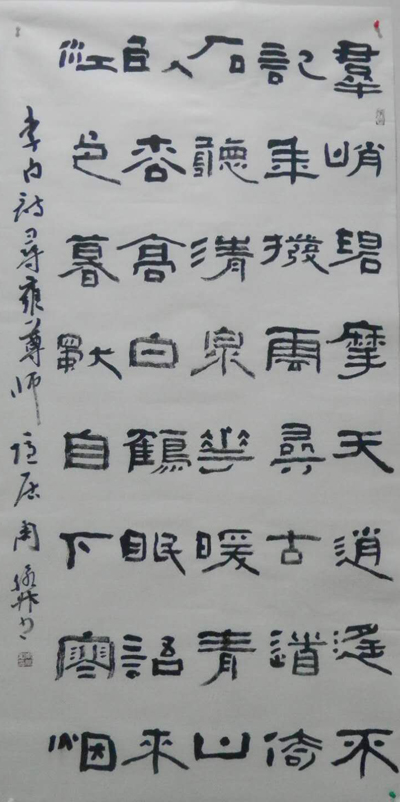 羣峭碧摩天逍遙不
記年撥雲尋古道倚
石聽清泉華暖青牛
臥枩高白鶴眠語來
江色暮獨自下寒烟
李白詩尋雍尊師隱居 周